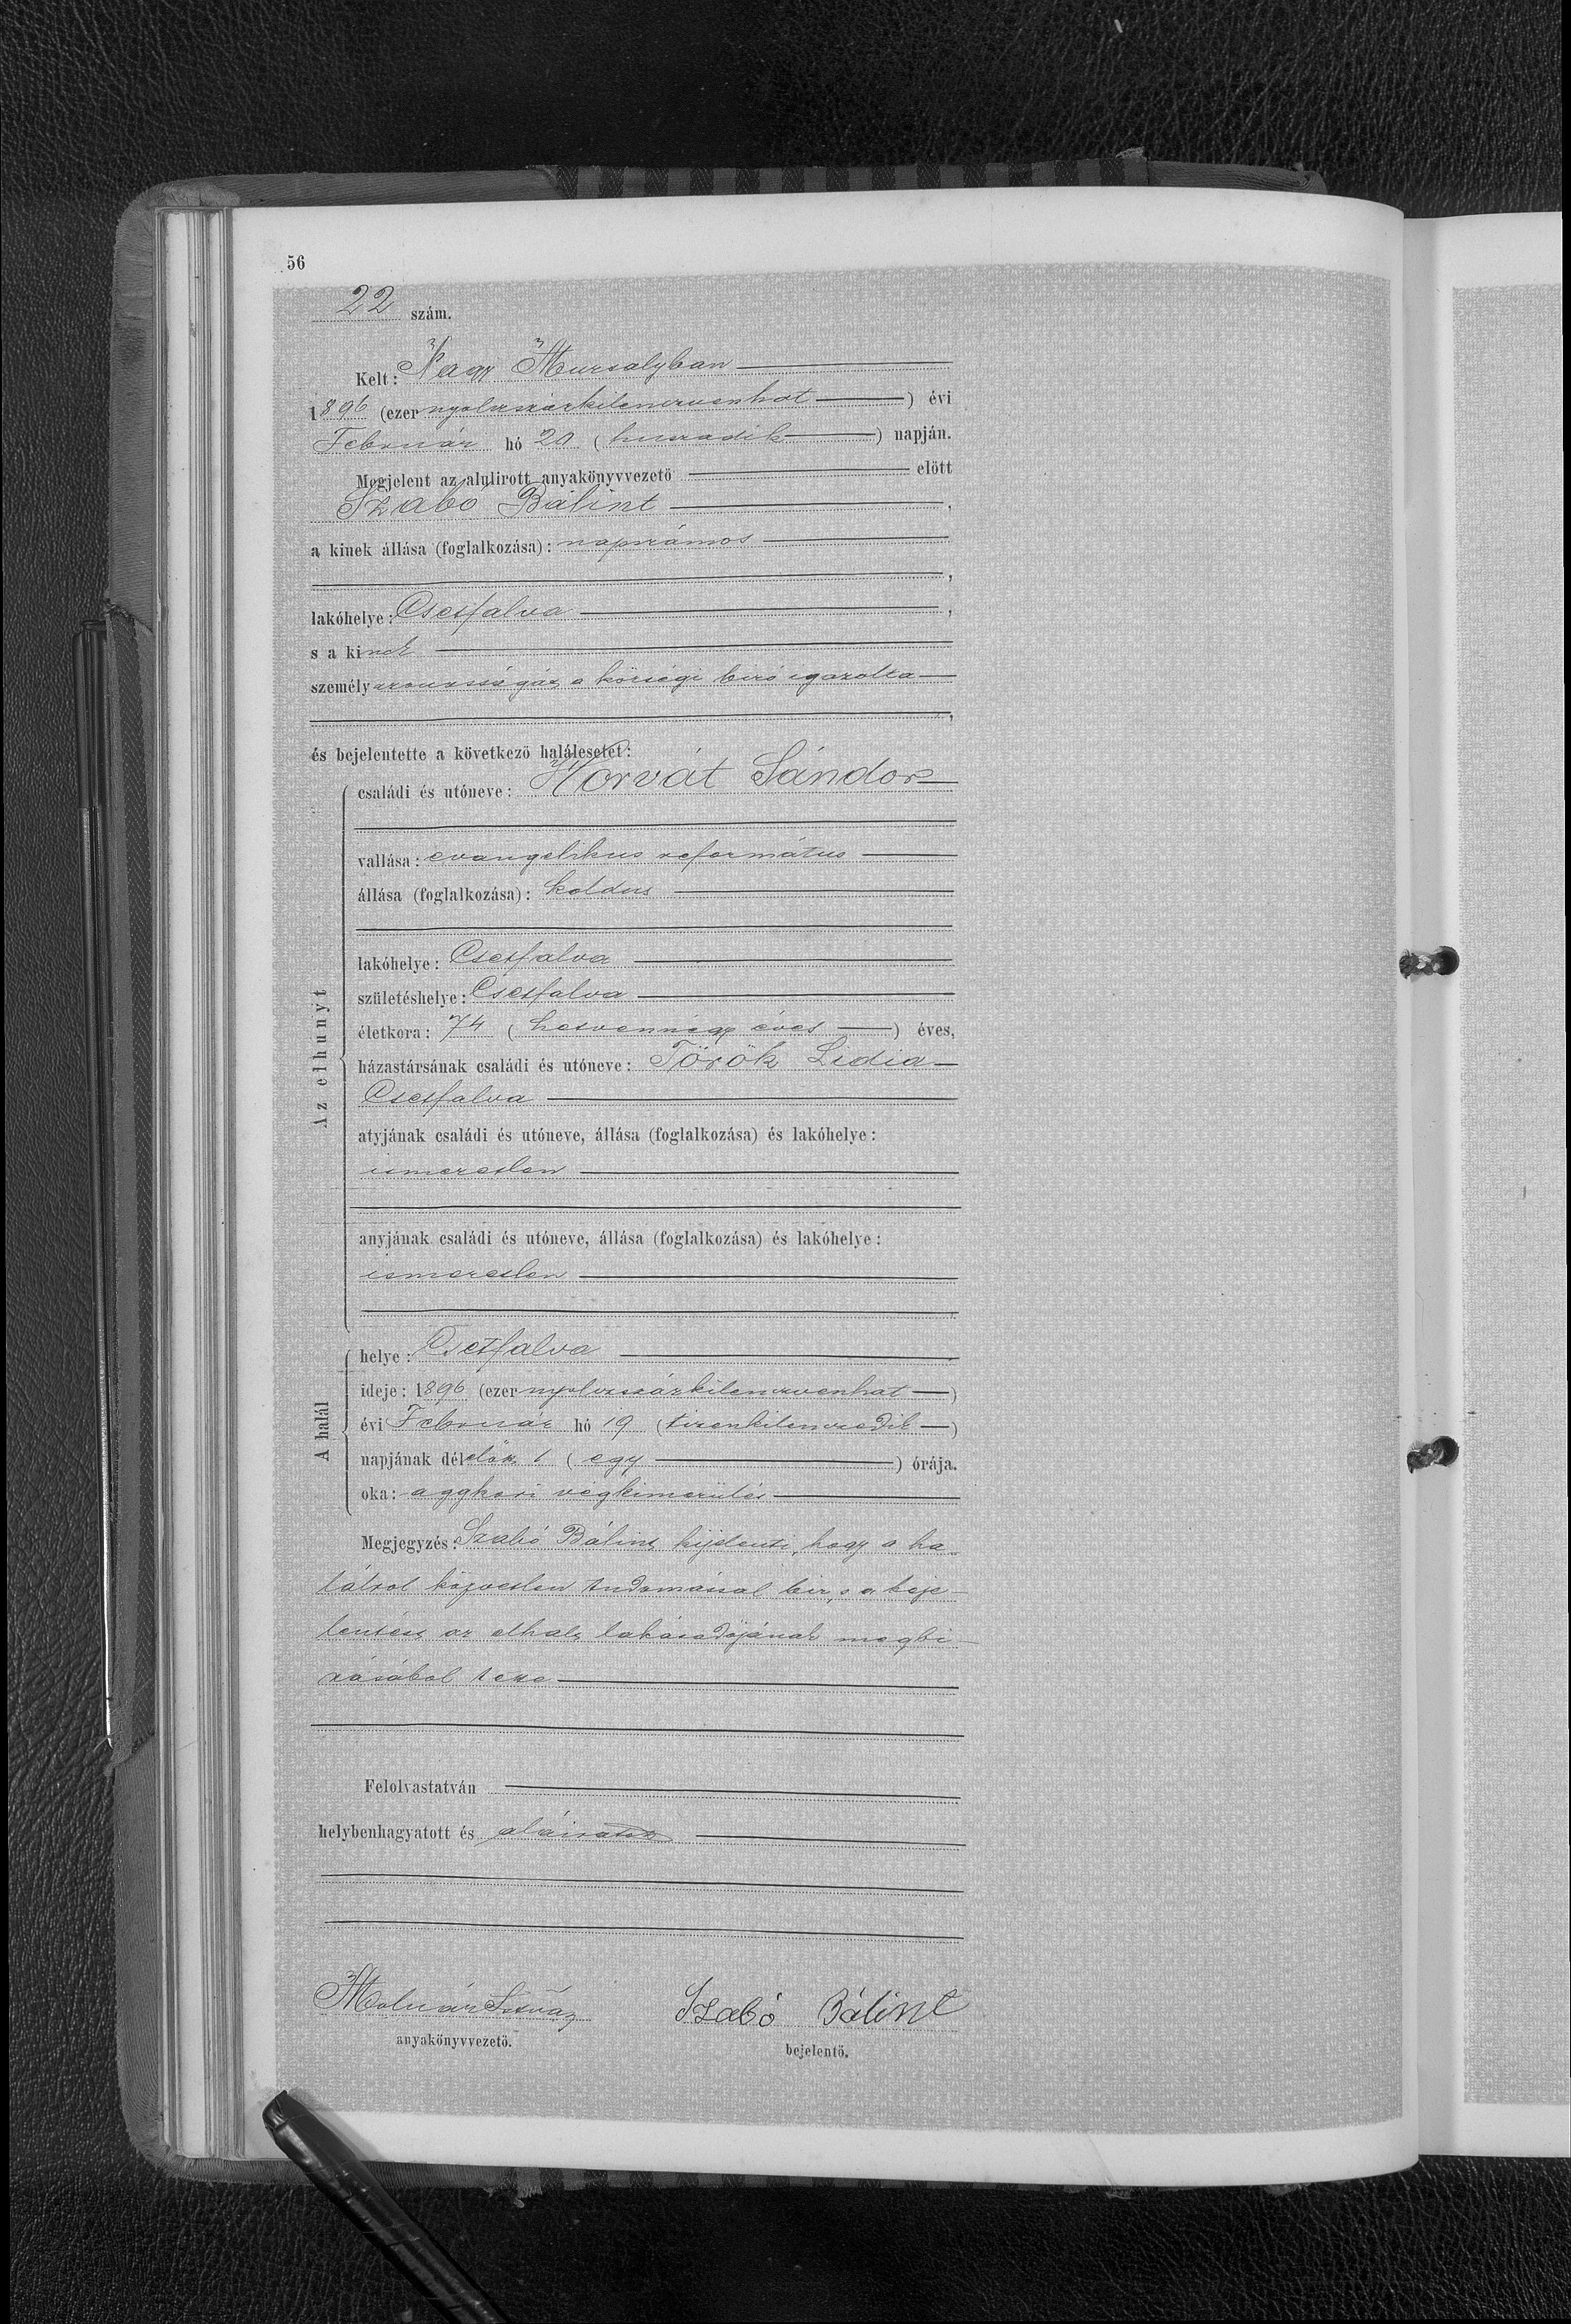 56
22 szám.
Kelt: Nagy Muzsalyban
1896 (ezer nyolczszázkilenczvenhat) évi
Február hó 20 (huszadik) napján.
Megjelent az alulirott anyakönyvvezető előtt
Szabó Bálint,
a kinek állása (foglalkozása): napszámos
,
lakóhelye: Csetfalva,
s a kinek
személyazonosságát a községi biró igazolta
,
és bejelentette a következő halálesetet:
Az elhunyt
családi és utóneve: Horvát Sándor
vallása: evangelikus református
állása (foglalkozása): koldus
lakóhelye: Csetfalva
születéshelye: Csetfalva
életkora: 74 (hetvennégy éves) éves,
házastársának családi és utóneve: Török Lidia
Csetfalva
atyjának családi és utóneve, állása (foglalkozása) és lakóhelye:
ismeretlen
anyjának családi és utóneve, állása (foglalkozása) és lakóhelye:
ismeretlen
A halál
helye: Csetfalva
ideje: 1896 (ezer nyolczszázkilenczvenhat)
évi Február hó 19 (tizenkilenczedik)
napjának délelőtt 1 (egy) órája.
oka: aggkori végkimerülés
Megjegyzés: Szabó Bálint kijelenti, hogy a ha-
lálról közvetlen tudomással bir, s a beje-
lentést az elhalt lakásadójának megbi-
zásából teszi
Felolvastatván
helybenhagyatott és aláiratott
Molnár István Szabó Bálint
anyakönyvvezető. bejelentő.